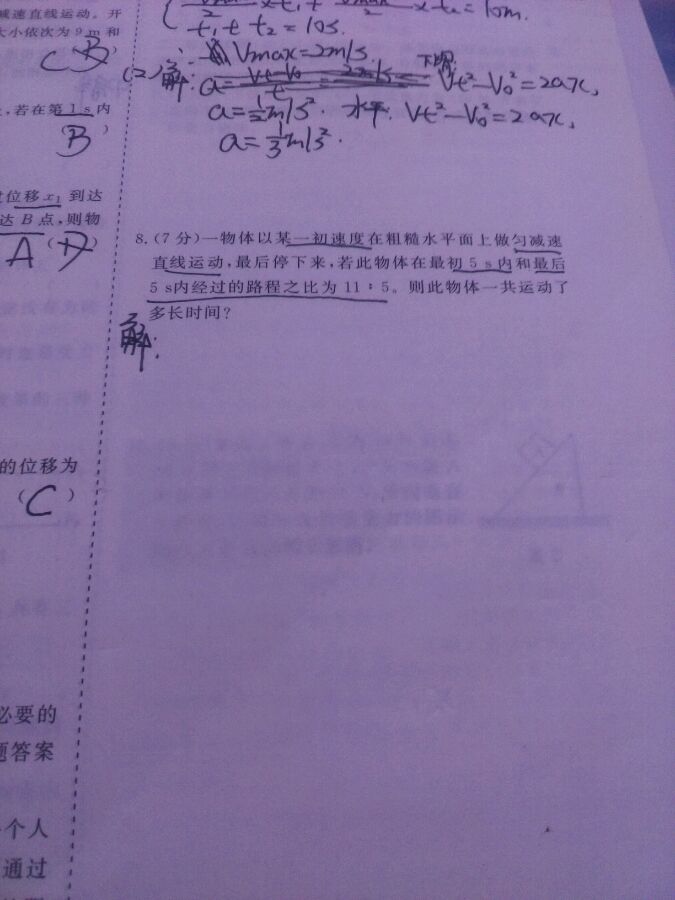 减速直线运动。开
大小依次为 9 m 和
C B )
,若在第 1 s 内
( B )
过位移 x₁ 到达
达 B 点,则物
A ( D )
的位移为
( C )
必要的
题答案
个人
通过
t₁ + t₂ = 10s.
Vmax = 2m/s.
(2) 解:
Vt²-V₀²=2ax,
a=½m/s². 水平: Vt²-V₀²=2ax,
a=⅓m/s².
8.(7 分)一物体以某一初速度在粗糙水平面上做匀减速
直线运动,最后停下来,若此物体在最初 5 s 内和最后
5 s内经过的路程之比为 11∶5。则此物体一共运动了
多长时间?
解: